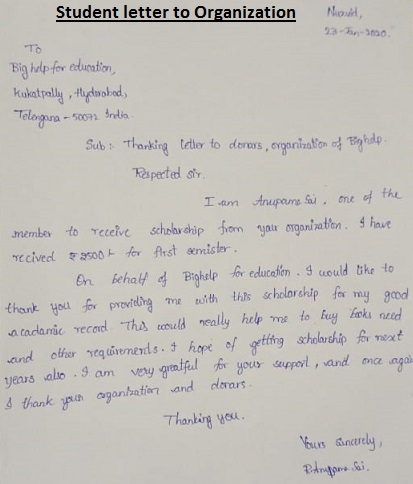 Student letter to Organization
Nuzvid,
23-Jan-2020.
To
Big help for education,
Kukatpally, Hyderabad,
Telangana - 50072 India.
Sub: Thanking letter to donars, organization of Bighelp.
Respected sir.
I am Anupama Sai, one of the
member to receive scholarship from your organization. I have
recived ₹ 2500/- for first semister.
On behalf of Bighelp for education. I would like to
thank you for providing me with this scholarship for my good
acadamic record. This would really help me to buy books need
and other requirements. I hope of getting scholarship for next
years also. I am very greatful for your support, and once again
I thank your organization and donars.
Thanking you.
Yours sincerely,
P. Anupama Sai.